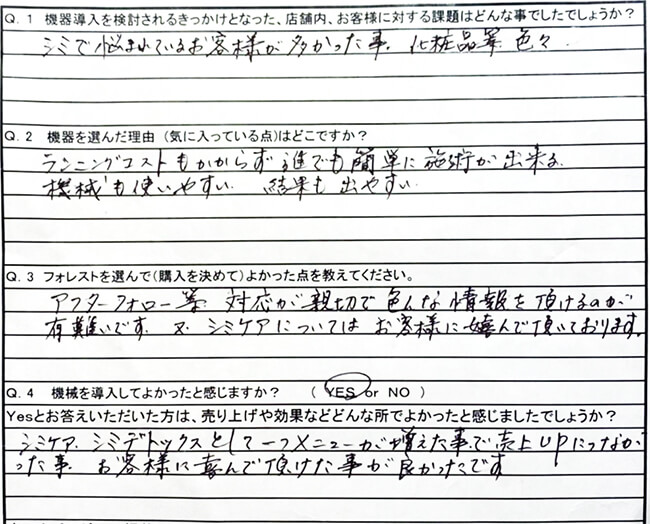 Q.1 機器導入を検討されるきっかけとなった、店舗内、お客様に対する課題はどんな事でしたでしょうか？
シミで悩まれているお客様が多かった事。化粧品等 色々。
Q.2 機器を選んだ理由（気に入っている点）はどこですか？
ランニングコストもかからず誰でも簡単に施術が出来る。
機械も使いやすい 結果も出やすい
Q.3 フォレストを選んで（購入を決めて）よかった点を教えてください。
アフターフォロー等 対応が親切で色んな情報を頂けるのが
有難いです。又、シミケアについてはお客様に嬉んで頂いております。
Q.4 機械を導入してよかったと感じますか？ （ YES or NO ）
Yesとお答えいただいた方は、売り上げや効果などどんな所でよかったと感じましたでしょうか？
シミケア、シミデトックスとして一つメニューが増えた事で売上UPにつなが
った事。お客様に喜んで頂けた事が良かったです